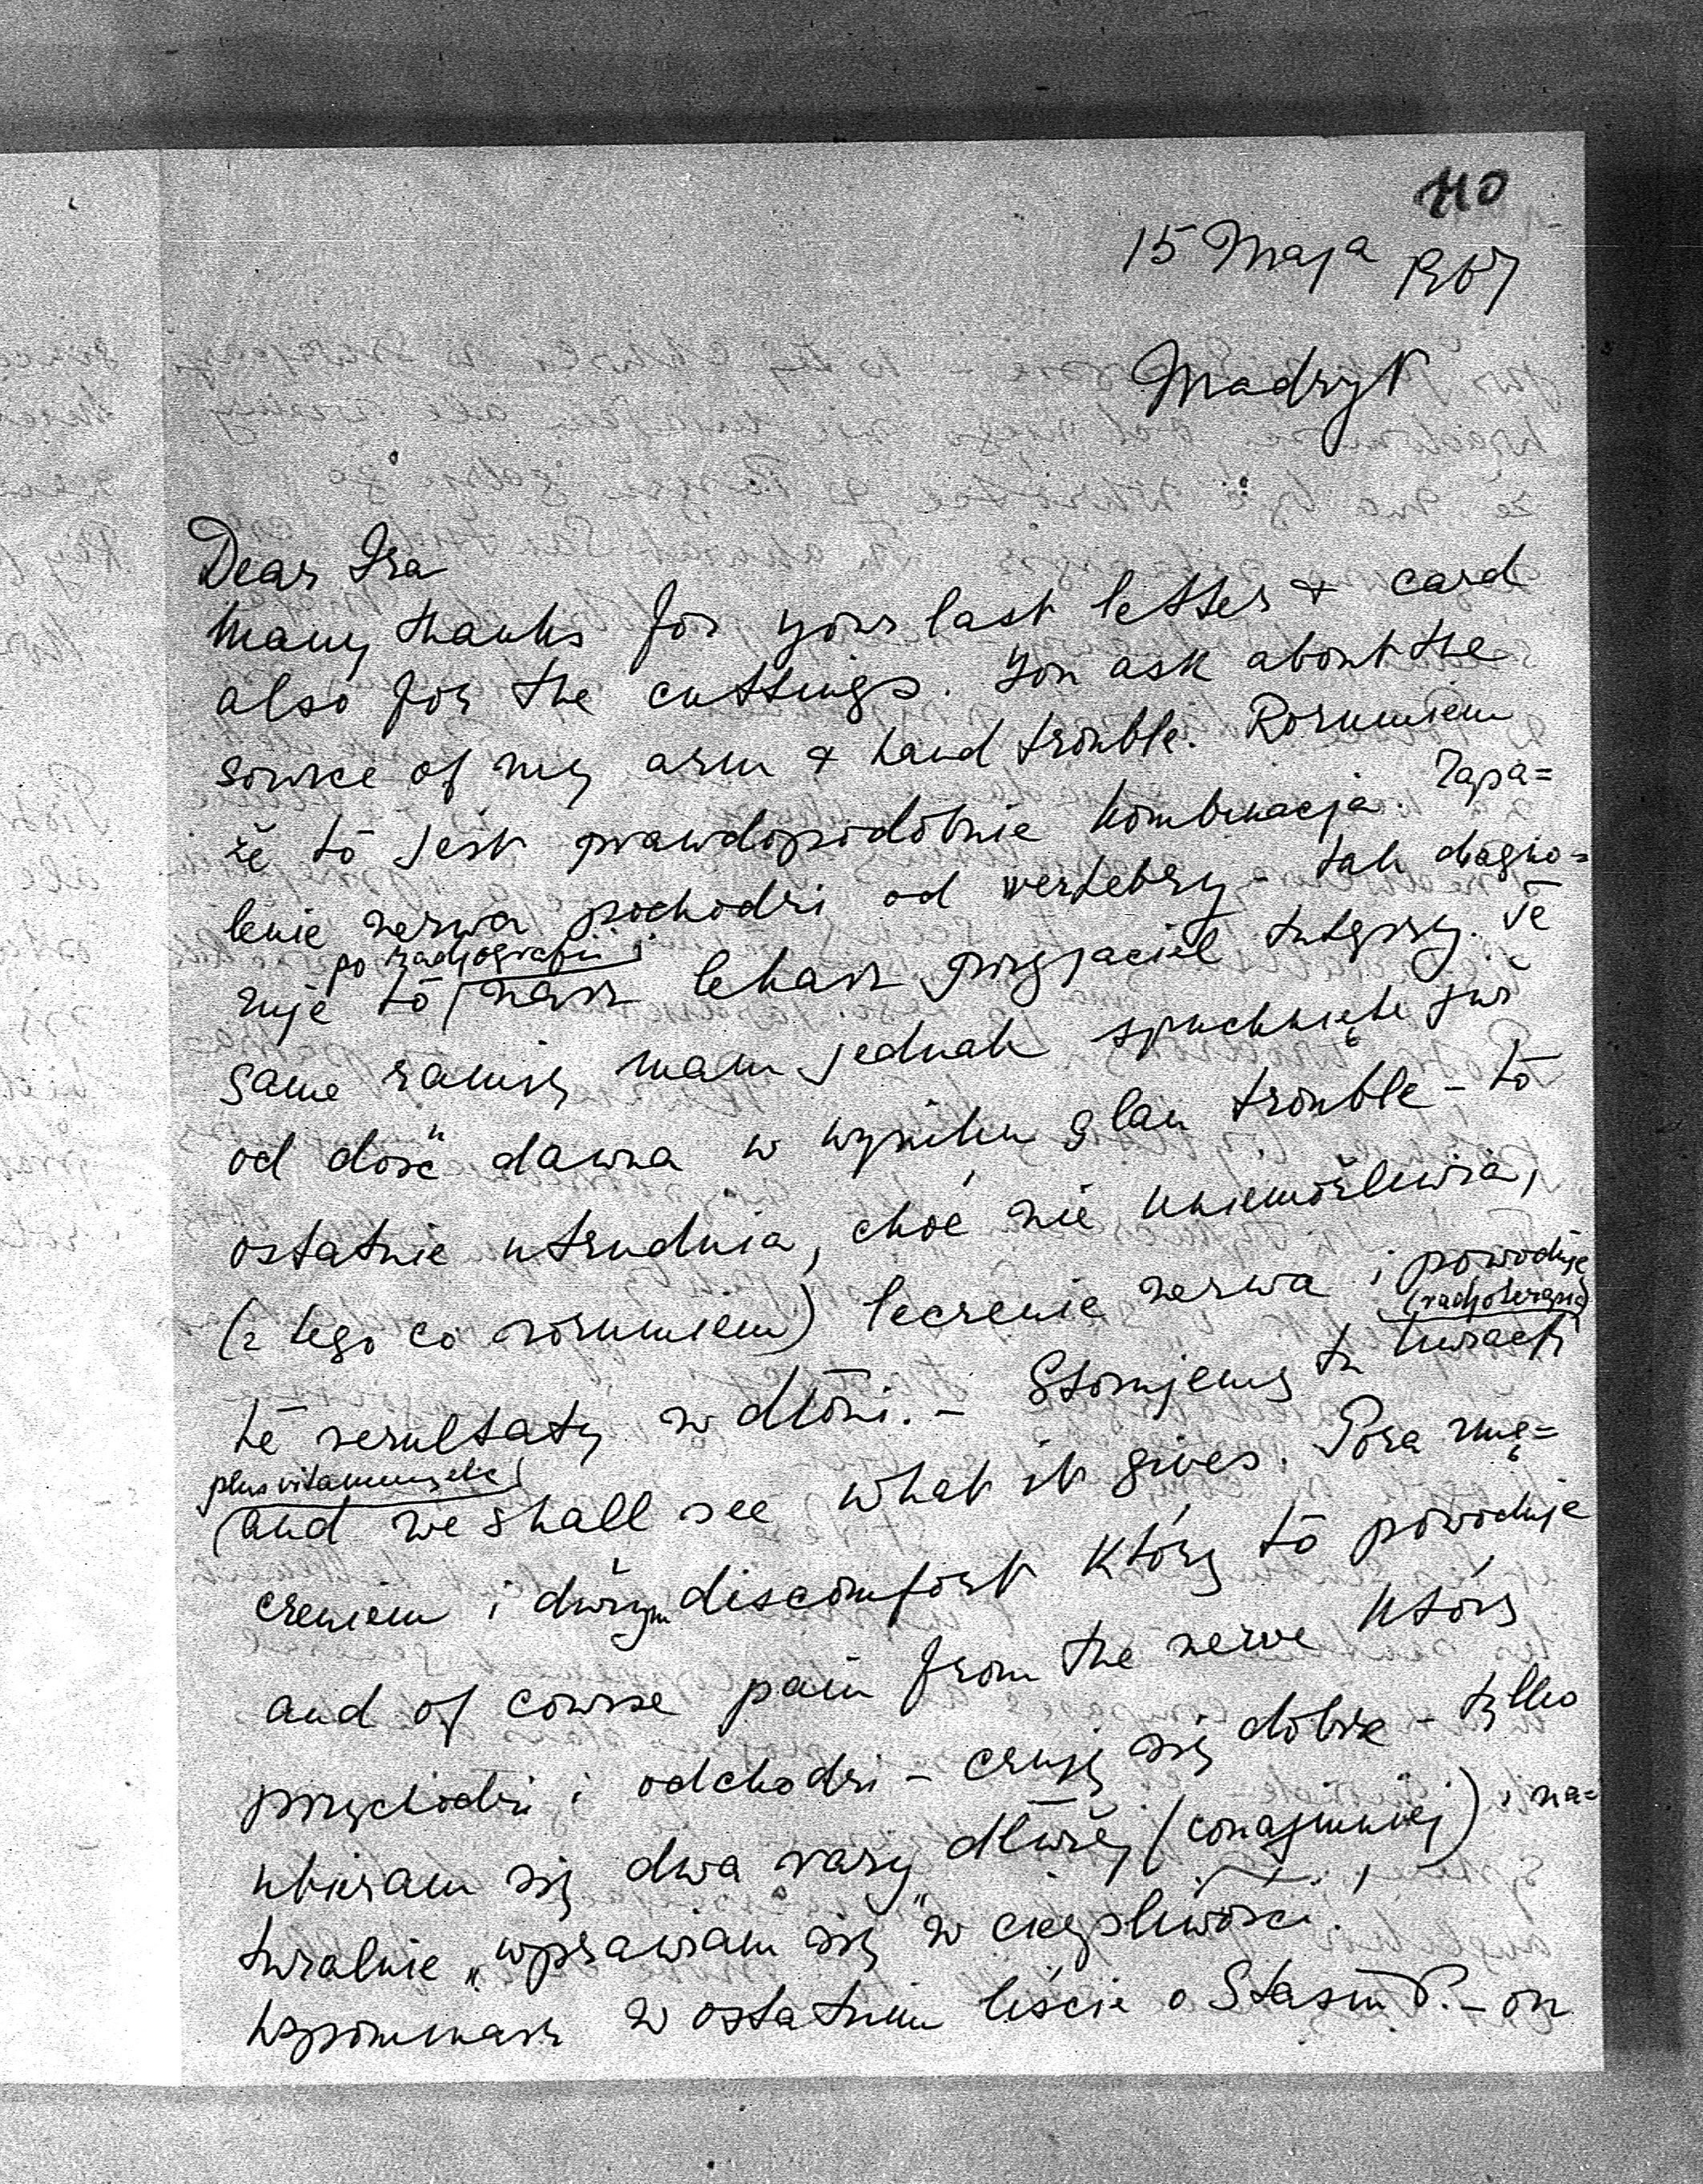 110
15 Maja 1967
Madryt
Dear Ira
Many thanks for your last letter & card
also for the cuttings. You ask about the
source of my arm & hand trouble. Rozumiem
że to jest prawdopodobnie kombinacja. Zapa=
lenie nerwa pochodzi od vertebry - tak diagno=
po radjografii
zuje to nasz lekarz przyjaciel tutejszy. Te
same ramię mam jednak spuchnięte już
od dość dawna w wyniku glan trouble - to
ostatnie utrudnia, choć nie uniemożliwia,
(z tego co rozumiem) leczenie nerwa i powoduje
(radjoterapia)
te rezultaty w dłoni. - Stosujemy tu
plus vitaminy etc
and we shall see what it gives. Poza zmę=
czeniem i dużym discomfort który to powoduje
and of course pain from the nerve który
przychodzi i odchodzi - czuję się dobrze - tylko
ubieram się dwa razy dłużej (conajmniej) i na=
turalnie „wprawiam się" w cierpliwości.
Wspominasz w ostatnim liście o Stasiu P. - on